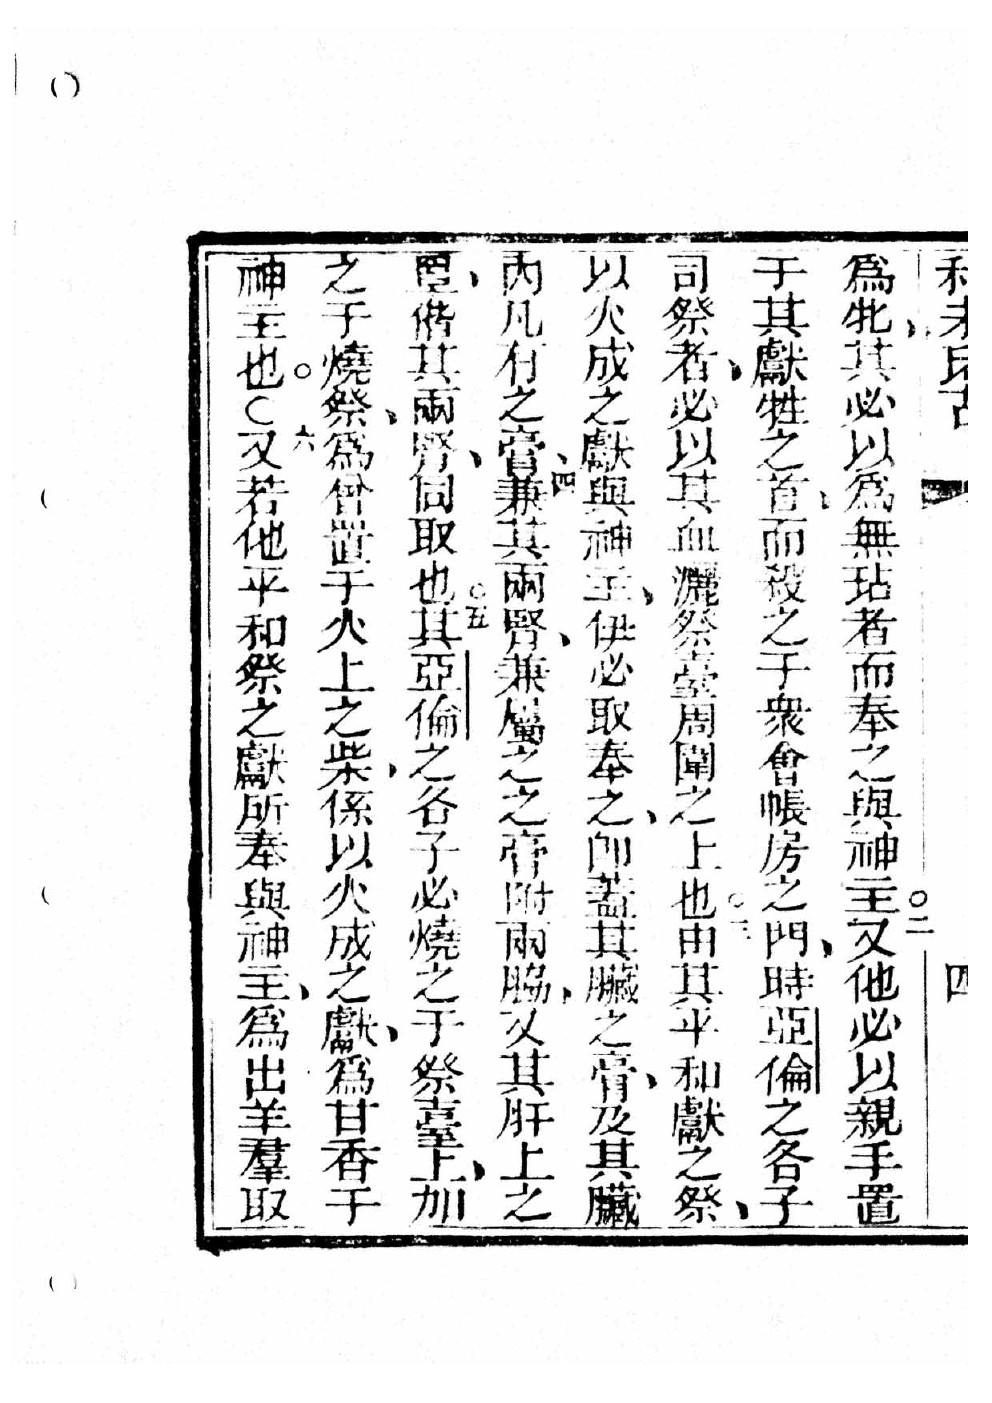 利未氏古 四
爲牝、其必以爲無玷者而奉之與神主○二又他必以親手置
于其獻牲之首、而殺之于衆會帳房之門、時亞倫之各子
司祭者、必以其血灑祭臺周圍之上也○三由其平和獻之祭、
以火成之獻與神主、伊必取奉之、卽蓋其臟之膏、及其臟
內凡有之膏、四兼其兩腎、兼屬之之膏附兩脇、又其肝上之
罩、偕其兩腎、同取也○五其亞倫之各子必燒之于祭臺上、加
之于燒祭、爲曾置于火上之柴、係以火成之獻、爲甘香于
神主也○六又若他平和祭之獻所奉與神主、爲出羊羣取